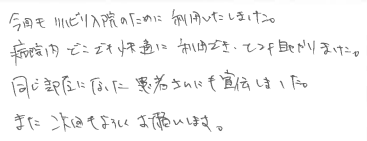 今回もリハビリ入院のために利用いたしました。
病院内どこでも快適に利用でき、とても助かりました。
同じ部屋になった患者さんにも宣伝しました。
また次回もよろしくお願いします。